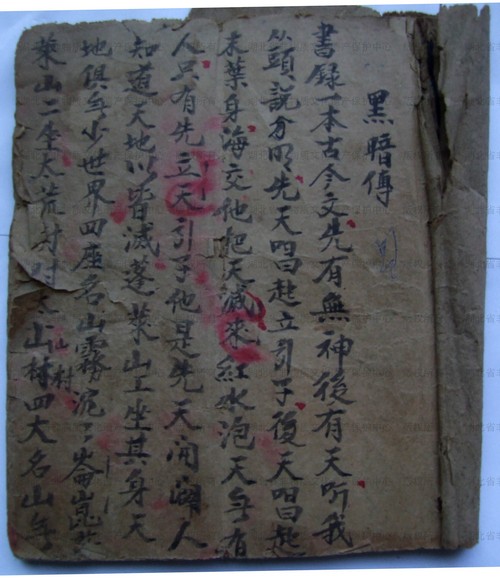 黑暗傳
書錄一本古今文先有無神後有天听我
从頭說分明先天唱起立引子後天唱起
末葉身海交他把天滅來紅水泡天無有
人只有先立天引子他是先天開闢人
知道天地以皆滅蓬萊山上坐其身天
地俱無少世界四座名山霧泥々崙崑
萊山二座太荒村山村四大名山無
山村